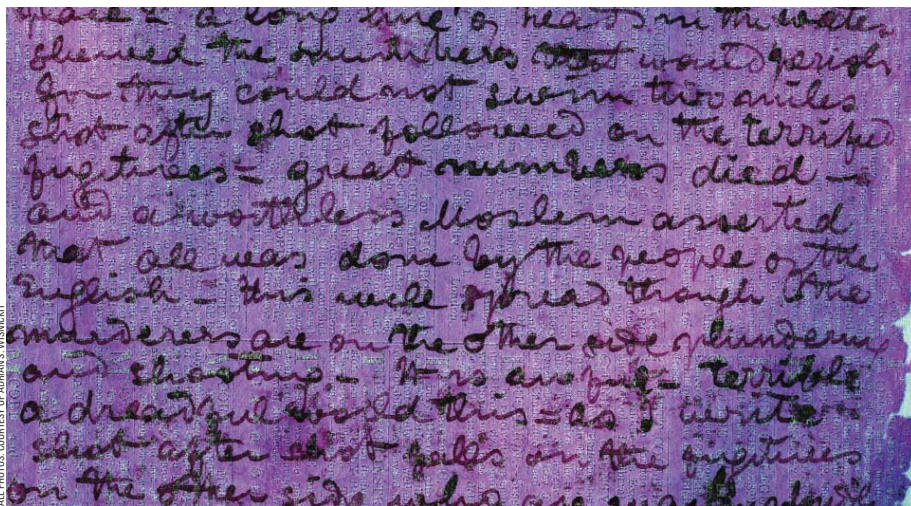 place = a long line of heads in the water
shewed the numbers that would perish
for they could not swim two miles
shot after shot followed on the terrified
fugitives = great numbers died —
and a worthless Moslem asserted
that all was done by the people of the
English - this will spread though the
murderers are on the other side plundering
and shooting - It is awful - terrible
a dreadful world this = as I write
shot after shot falls on the fugitives
on the other side who are
ALL PHOTOS: COURTESY OF ADRIAN S. WISNICKI